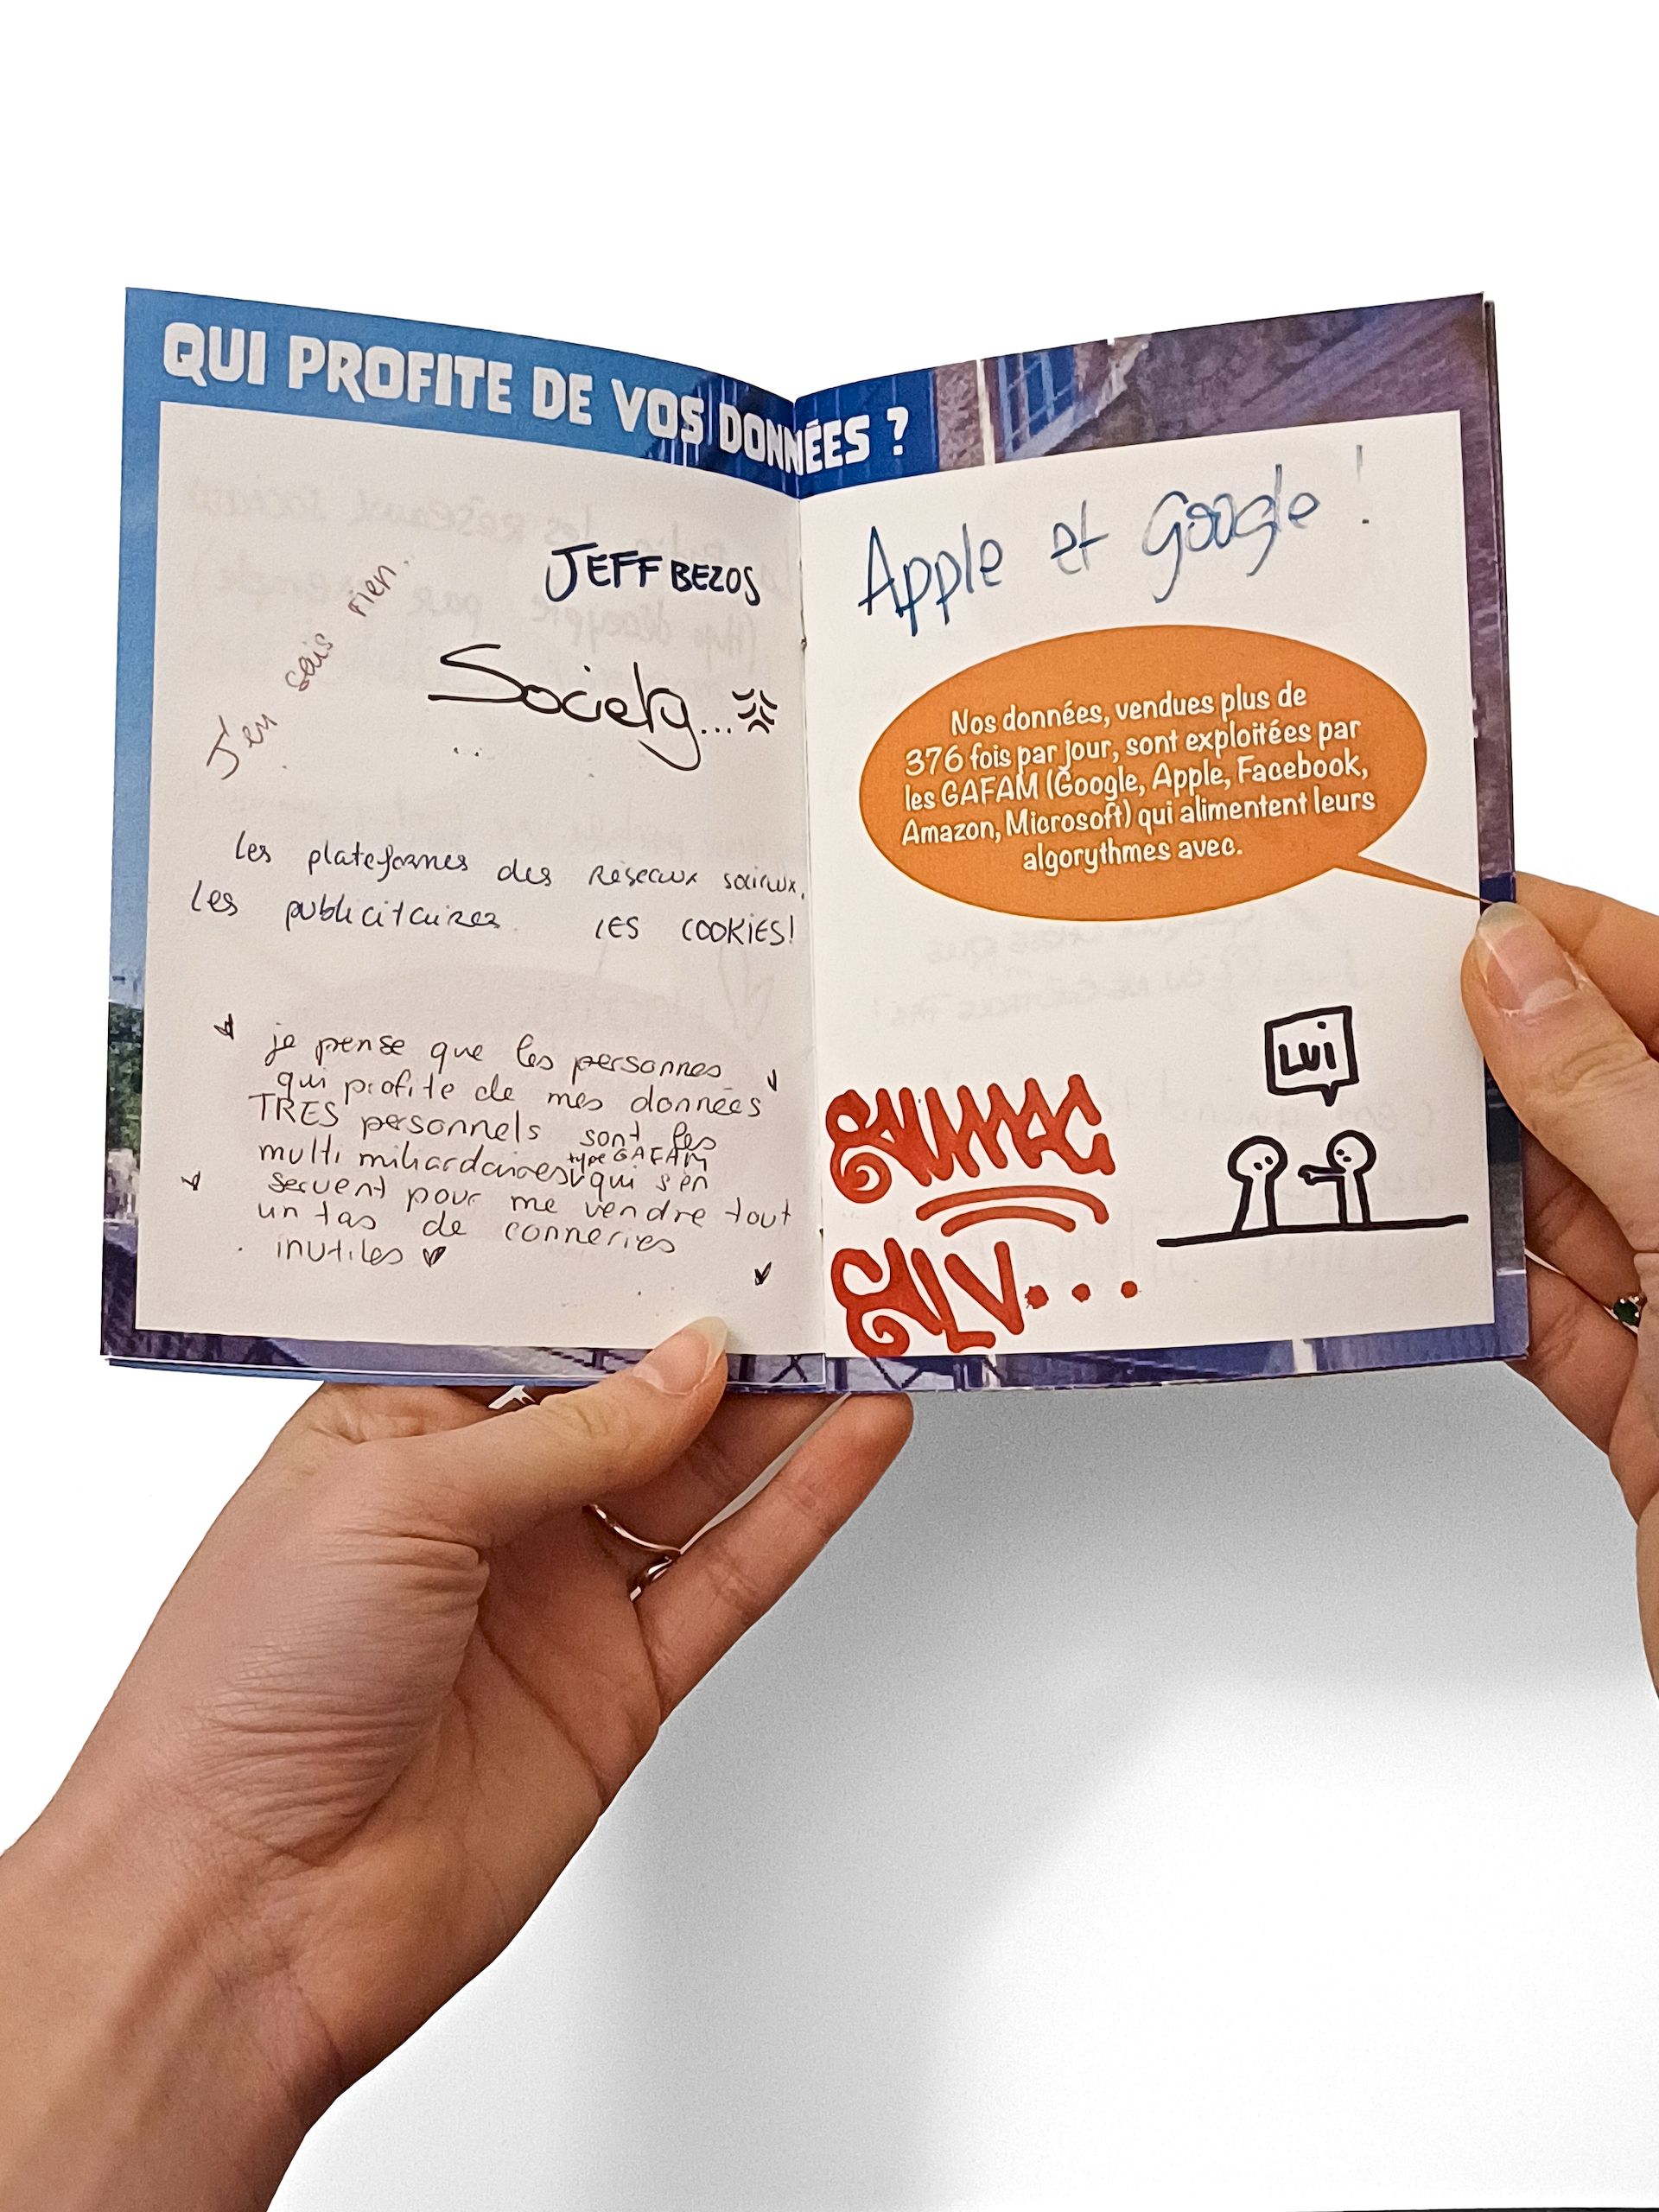 QUI PROFITE DE VOS DONNÉES ?
J'en sais rien.
JEFF BEZOS
Society...
les plateformes des réseaux sociaux.
les publicitaires LES COOKIES!
je pense que les personnes
qui profite de mes données
TRES personnels sont les
multi miliardaires type GAFAM qui s'en
servent pour me vendre tout
un tas de conneries
inutiles
Apple et Google !
Nos données, vendues plus de
376 fois par jour, sont exploitées par
les GAFAM (Google, Apple, Facebook,
Amazon, Microsoft) qui alimentent leurs
algorythmes avec.
LUi